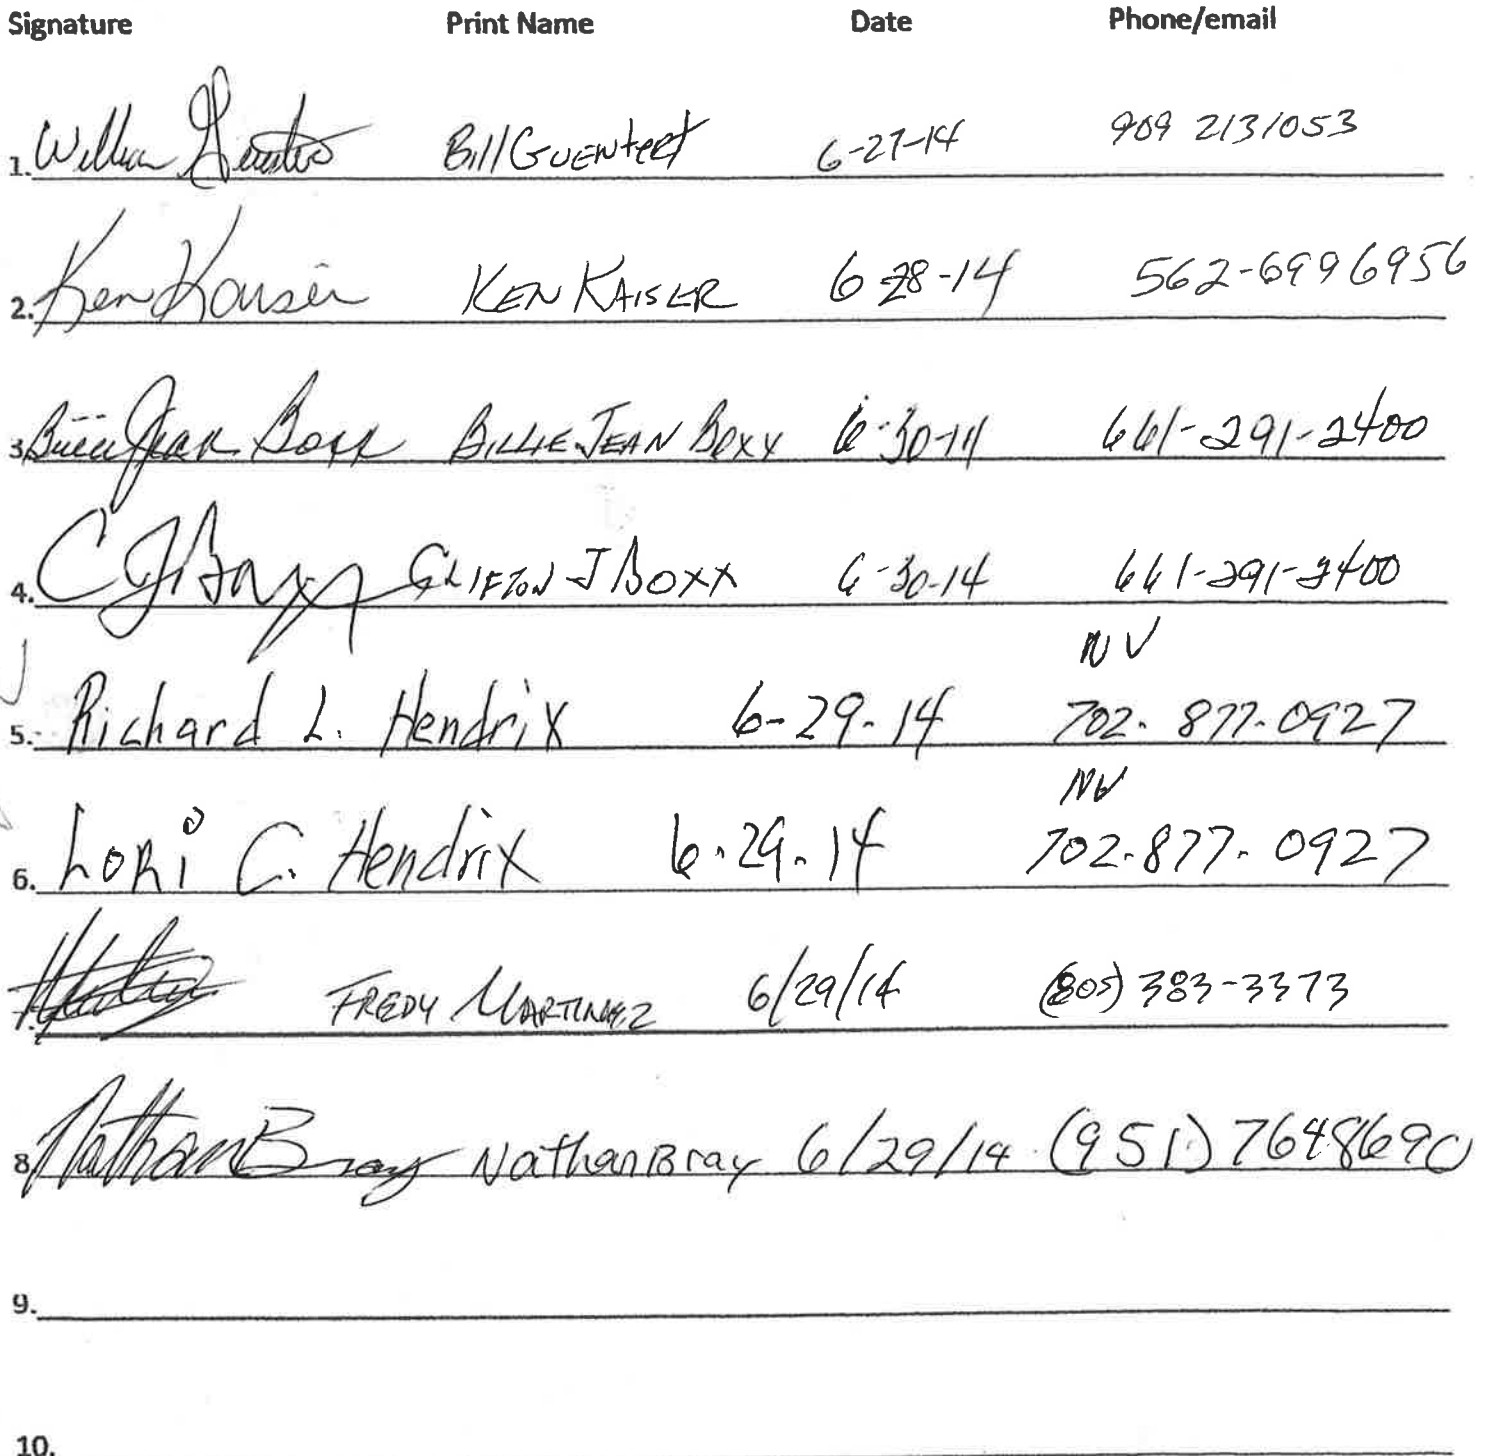 Signature Print Name Date Phone/email
1. William Bill Guentert 6-27-14 909 2131053
2. Ken Kaiser KEN KAISER 6-28-14 562-6996956
3. Billie Jean Boxx BILLIE JEAN BOXX 6-30-14 661-291-2400
4. C J Boxx CLIFTON J BOXX 6-30-14 661-291-2400
NV
5. Richard L. Hendrix 6-29-14 702-877-0927
NV
6. Lori C. Hendrix 6-29-14 702-877-0927
7. FREDY MARTINEZ 6/29/14 (805) 383-3373
8. Nathan Bray Nathan Bray 6/29/14 (951) 7648690
9.
10.